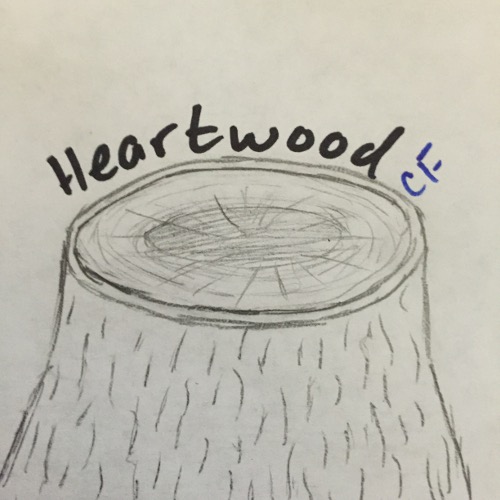 Heartwood CF